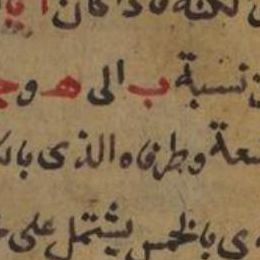 لكنه فاذا كان ا
نسبة ب الى ه و ج
وطرفاه الذى بال
ى بالخمس يشتمل على